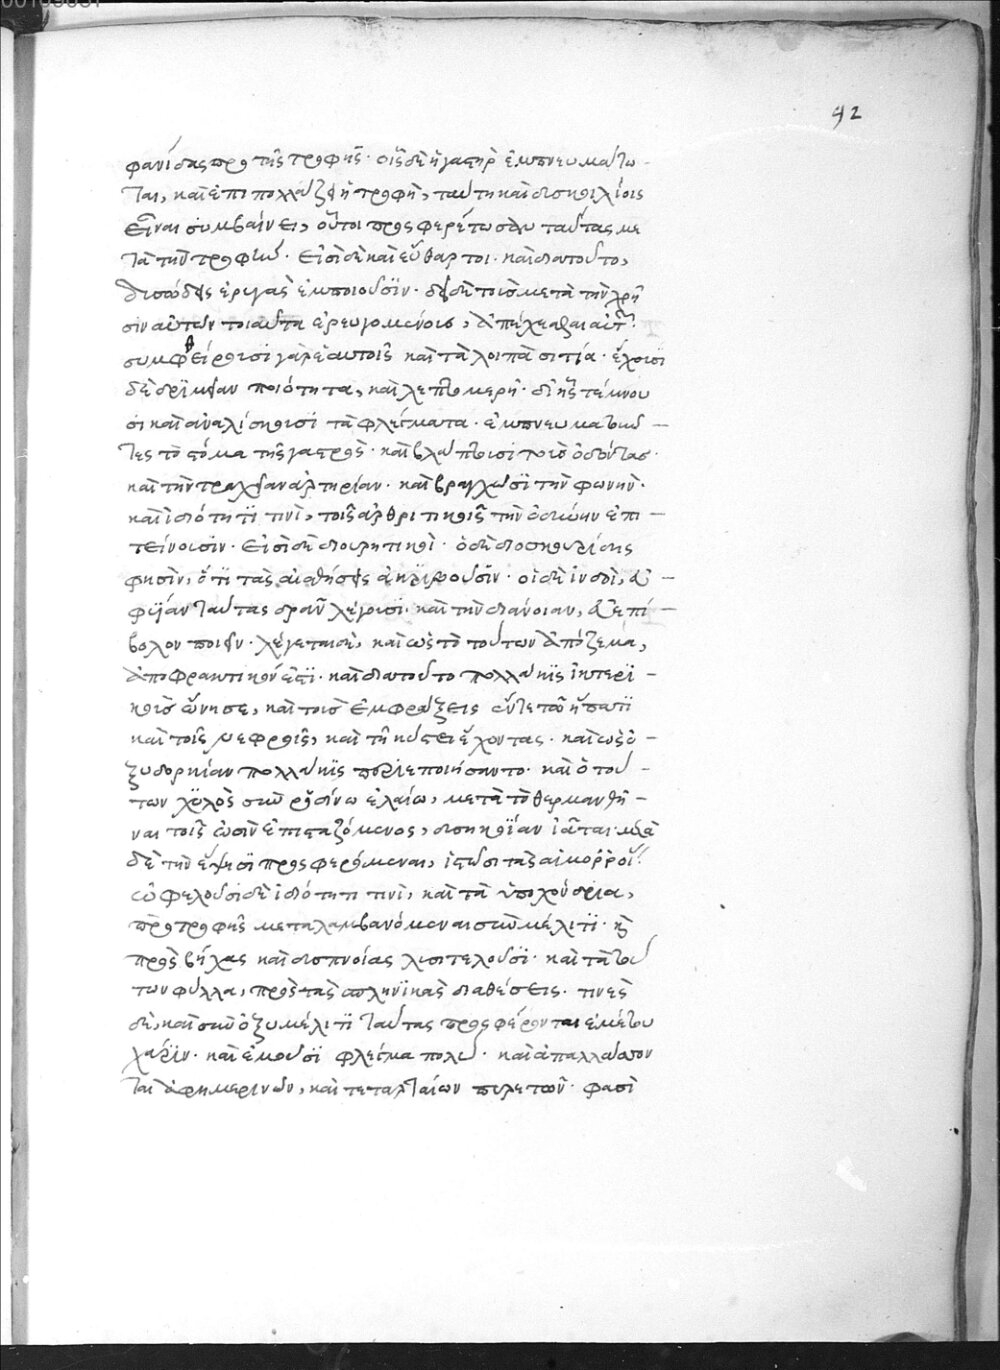 42
φανίδας πρὸ τῆς τροφῆς· οἷς δὲ ἡ γαστὴρ ἐμπνευματω
ται, καὶ ἐπιπολάζει ἡ τροφὴ, ταύτη καὶ δυσκοιλίοις
εἶναι συμβαίνει, οὗτοι προσφερέτωσαν ταύτας με
τὰ τὴν τροφήν· εἰσὶ δὲ καὶ εὔφθαρτοι· καὶ διὰ τοῦτο,
δυσώδεις ἐρυγὰς ἐμποιοῦσιν· δεῖ δὲ τοῖς μετὰ τὴν χρῆ
σιν αὐτῶν τοιαῦτα ἐρευγομένοις, ἀπέχεσθαι αὐτῶν·
συμφθείρουσι γὰρ ἑαυτοῖς καὶ τὰ λοιπὰ σιτία· ἔχουσι
δὲ δριμεῖαν ποιότητα, καὶ λεπτομερῆ· δι' ἧς τέμνου
σι καὶ ἀναλίσκουσι τὰ φλέγματα· ἐμπνευματοῦν
τες τὸ στόμα τῆς γαστρὸς· καὶ βλάπτουσι τοὺς ὀδόντας·
καὶ τὴν τραχεῖαν ἀρτηρίαν· καὶ βραγχῶσι τὴν φωνὴν·
καὶ ἰδιότητί τινι, τοῖς ἀρθριτικοῖς τὴν ὀδύνην ἐπι
τείνουσιν· εἰσὶ δὲ διουρητικοὶ· ὁ δὲ διοσκουρίδης
φησὶν, ὅτι τὰς αἰσθήσεις ἀκριβοῦσιν· οἱ δὲ ἰνδοὶ, εὐ
φυΐαν ταύτας δρᾶν λέγουσι· καὶ τὴν διάνοιαν, εὐεπί
βολον ποιεῖν· λέγεται δὲ, καὶ ὡς τὸ τούτων ἀπόζεμα,
ἀποφρακτικόν ἐστι· καὶ διὰ τοῦτο πολλάκις ἰκτερι
κοὺς ὤνησε, καὶ τοὺς ἐμφράξεις ἔν τε τῶ ἥπατι
καὶ τοῖς νεφροῖς, καὶ τῆ κύστει ἔχοντας· καὶ ὡς ὀ
ξυδορκίαν πολλάκις περιεποιήσαντο· καὶ ὁ τού
των χυλὸς σὺν ῥοδίνω ἐλαίω, μετὰ τὸ θερμανθῆ
ναι τοῖς ὠσὶν ἐπισταζόμενος, δυσηκοΐαν ἰᾶται· μετὰ
δὲ τὴν ἕψησι προσφερόμεναι, ἱστῶσι τὰς αἱμορροΐας·
ὠφελοῦσι δὲ ἰδιότητί τινι, καὶ τὰ ὑποχόνδρια,
πρὸ τροφῆς μεταλαμβανόμεναι σὺν μέλιτι· καὶ
πρὸς βῆχας καὶ δυσπνοίας λυσιτελοῦσι· καὶ τὰ τού
των φύλλα, πρὸς τὰς σπληνικὰς διαθέσεις· τινὲς
δὲ, καὶ σὺν ὀξυμέλιτι ταύτας προσφέρονται ἐμέτου
χάριν· καὶ ἐμοῦσι φλέγμα πολύ· καὶ ἀπαλλάττον
ται ἀφημερινῶν, καὶ τεταρταίων πυρετῶν· φασὶ